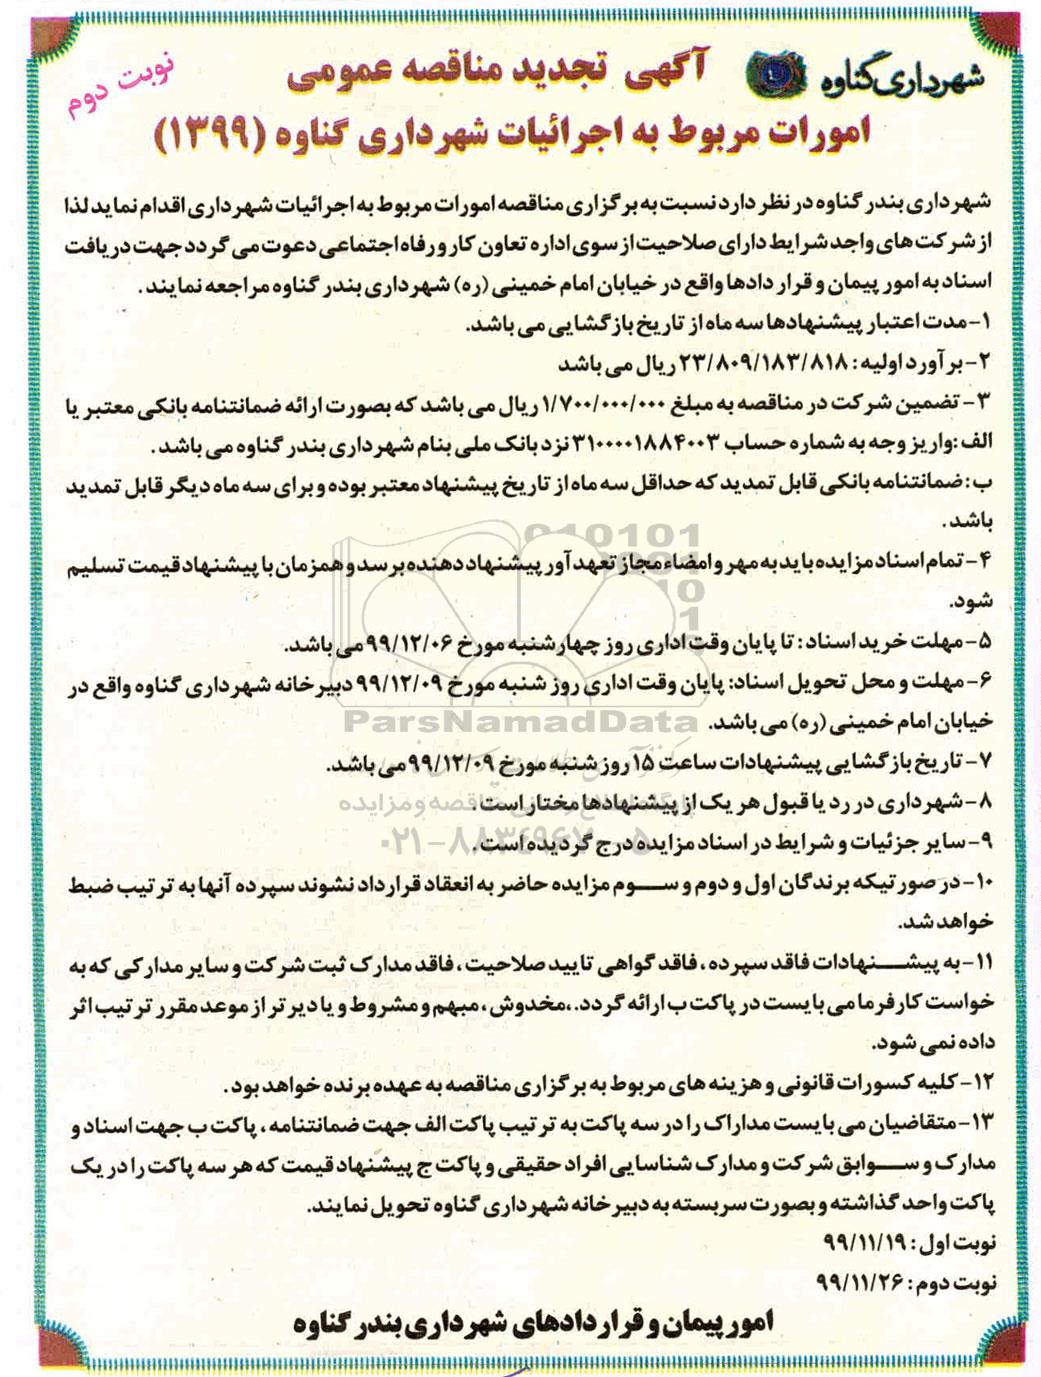 شهرداری گناوه
آگهی تجدید مناقصه عمومی
نوبت دوم
امورات مربوط به اجرائیات شهرداری گناوه (۱۳۹۹)
شهرداری بندر گناوه در نظر دارد نسبت به برگزاری مناقصه امورات مربوط به اجرائیات شهرداری اقدام نماید لذا
از شرکت های واجد شرایط دارای صلاحیت از سوی اداره تعاون کار و رفاه اجتماعی دعوت می گردد جهت دریافت
اسناد به امور پیمان و قرار دادها واقع در خیابان امام خمینی (ره) شهرداری بندر گناوه مراجعه نمایند.
۱- مدت اعتبار پیشنهادها سه ماه از تاریخ بازگشایی می باشد.
۲- برآورد اولیه: ۲۳/۸۰۹/۱۸۳/۸۱۸ ریال می باشد
۳- تضمین شرکت در مناقصه به مبلغ ۱/۷۰۰/۰۰۰/۰۰۰ ریال می باشد که بصورت ارائه ضمانتنامه بانکی معتبر یا
الف: واریز وجه به شماره حساب ۳۱۰۰۰۰۱۸۸۴۰۰۳ نزد بانک ملی بنام شهرداری بندر گناوه می باشد.
ب: ضمانتنامه بانکی قابل تمدید که حداقل سه ماه از تاریخ پیشنهاد معتبر بوده و برای سه ماه دیگر قابل تمدید
باشد.
۴- تمام اسناد مزایده باید به مهر و امضاء مجاز تعهد آور پیشنهاد دهنده برسد و همزمان با پیشنهاد قیمت تسلیم
شود.
۵- مهلت خرید اسناد: تا پایان وقت اداری روز چهارشنبه مورخ ۹۹/۱۲/۰۶ می باشد.
۶- مهلت و محل تحویل اسناد: پایان وقت اداری روز شنبه مورخ ۹۹/۱۲/۰۹ دبیرخانه شهرداری گناوه واقع در
خیابان امام خمینی (ره) می باشد.
ParsNamadData
۷- تاریخ بازگشایی پیشنهادات ساعت ۱۵ روز شنبه مورخ ۹۹/۱۲/۰۹ می باشد.
۸- شهرداری در رد یا قبول هر یک از پیشنهادها مختار است.
۹- سایر جزئیات و شرایط در اسناد مزایده درج گردیده است.
۱۰- در صورتیکه برندگان اول و دوم و سوم مزایده حاضر به انعقاد قرارداد نشوند سپرده آنها به ترتیب ضبط
خواهد شد.
۱۱- به پیشنهادات فاقد سپرده، فاقد گواهی تایید صلاحیت، فاقد مدارک ثبت شرکت و سایر مدارکی که به
خواست کارفرما می بایست در پاکت ب ارائه گردد.،مخدوش، مبهم و مشروط و یا دیرتر از موعد مقرر ترتیب اثر
داده نمی شود.
۱۲- کلیه کسورات قانونی و هزینه های مربوط به برگزاری مناقصه به عهده برنده خواهد بود.
۱۳- متقاضیان می بایست مداراک را در سه پاکت به ترتیب پاکت الف جهت ضمانتنامه، پاکت ب جهت اسناد و
مدارک و سوابق شرکت و مدارک شناسایی افراد حقیقی و پاکت ج پیشنهاد قیمت که هر سه پاکت را در یک
پاکت واحد گذاشته و بصورت سربسته به دبیرخانه شهرداری گناوه تحویل نمایند.
نوبت اول: ۹۹/۱۱/۱۹
نوبت دوم: ۹۹/۱۱/۲۶
امور پیمان و قراردادهای شهرداری بندر گناوه